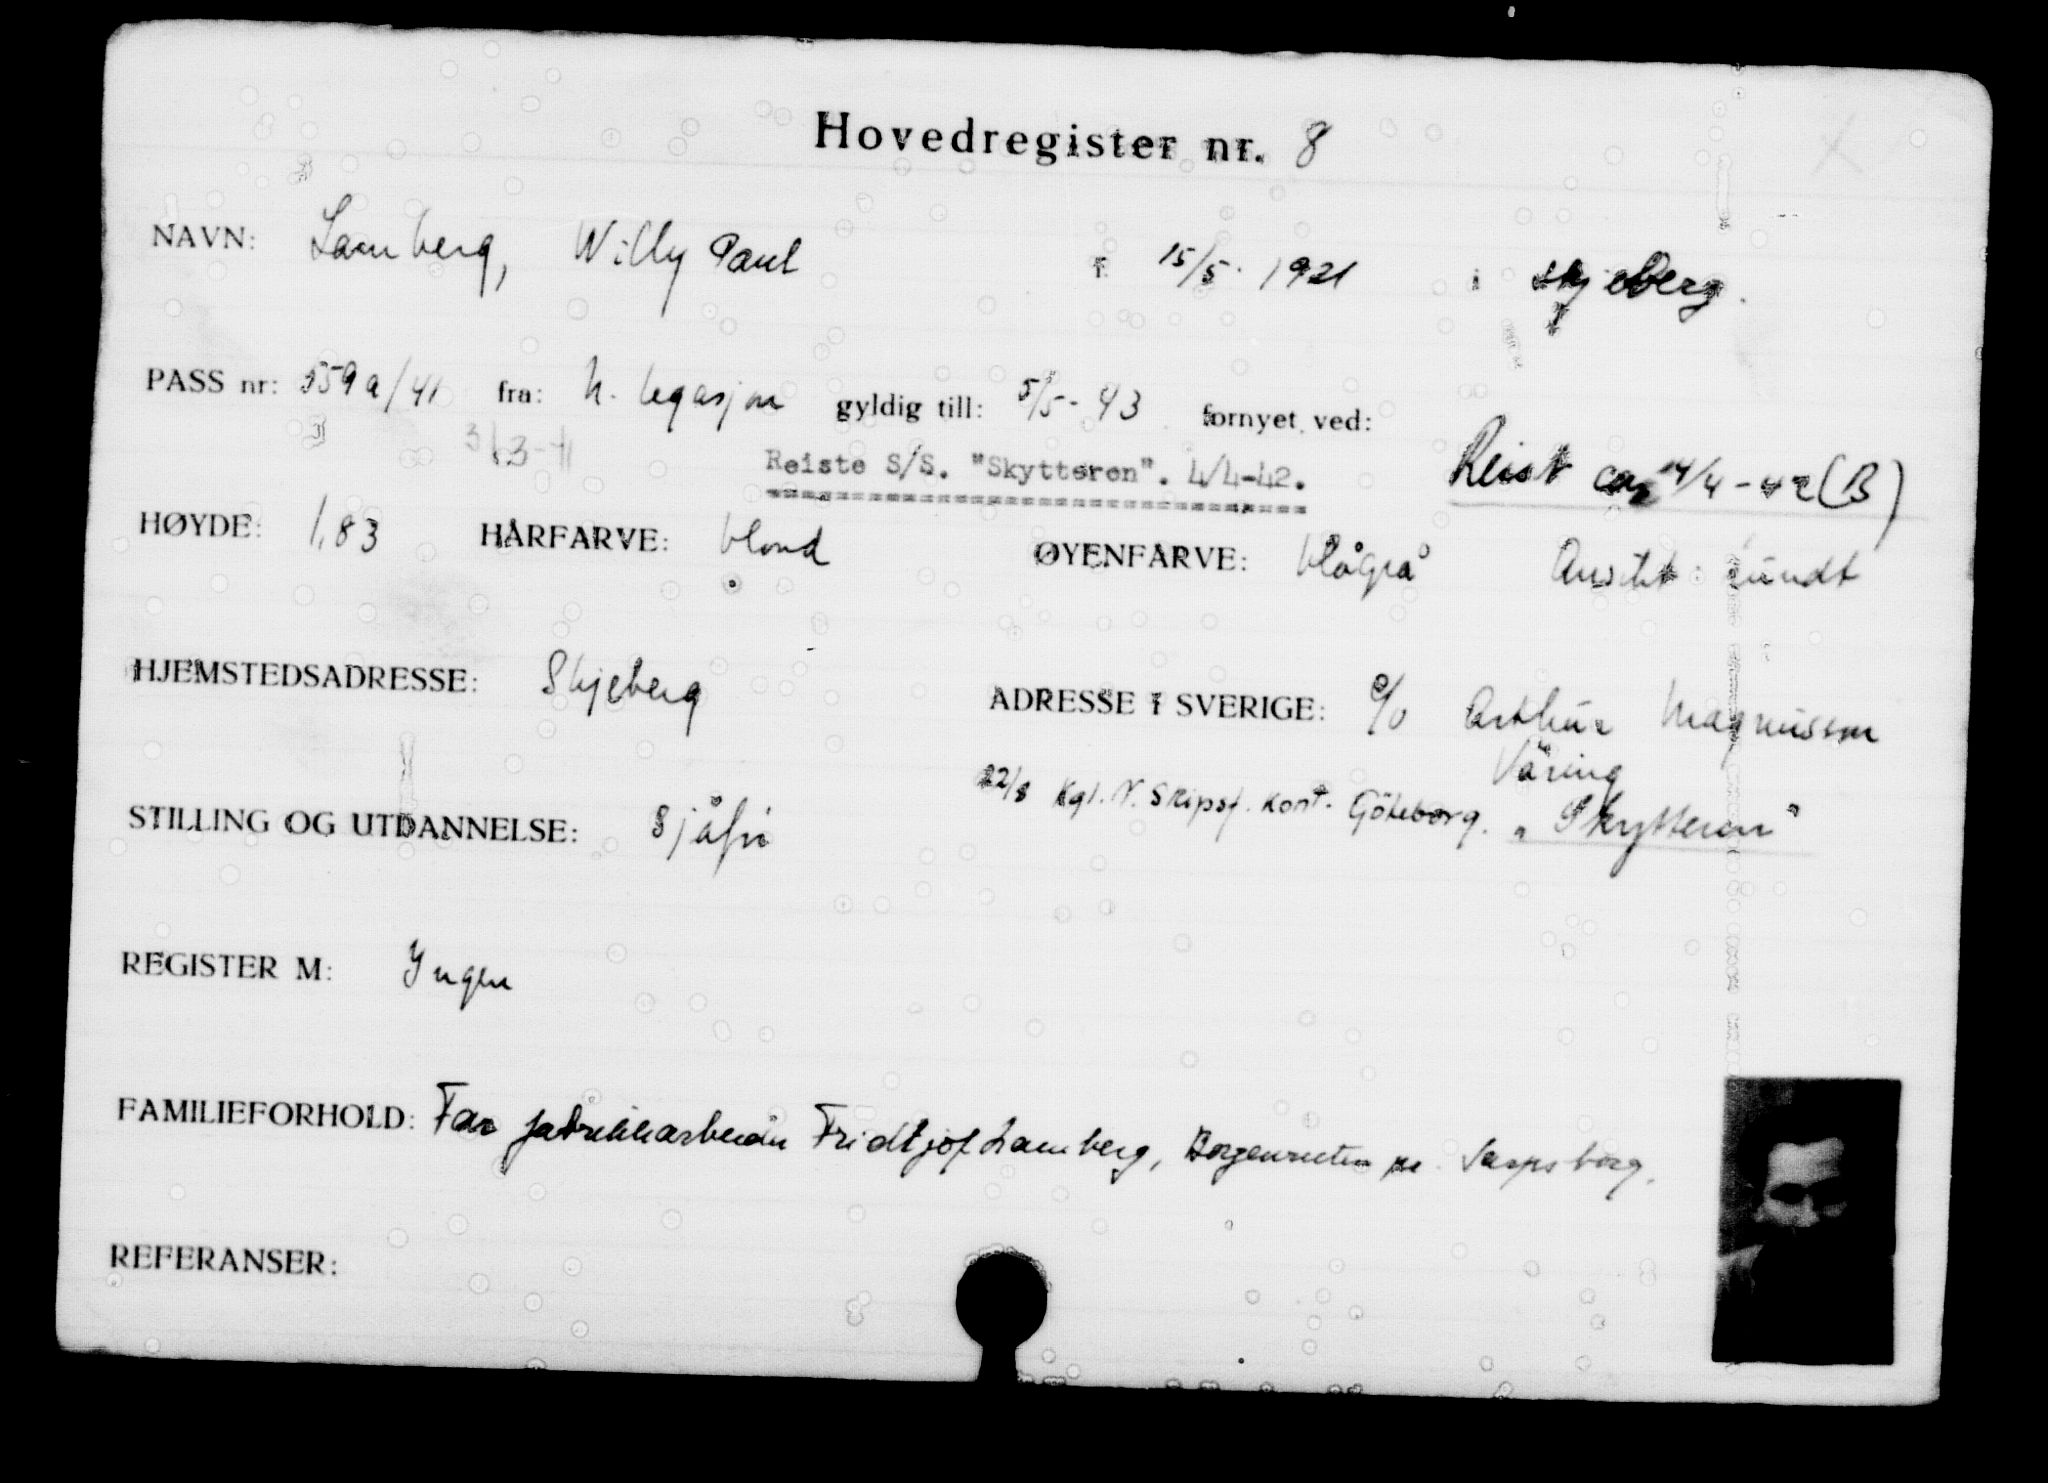 Hovedregister nr. 8
NAVN: Lamberg, Willy Paul f. 15/5. 1921 i Skjeberg.
PASS nr: 559a/41 fra: N. legasjon gyldig till: 5/5-43 fornyet ved:
3/3-41
Reiste S/S. "Skytteren". 4/4-42. Reist ca 14/4-42 (B)
HØYDE: 1,83 HÅRFARVE: blond ØYENFARVE: blågrå Ansikt: rundt
HJEMSTEDSADRESSE: Skjeberg ADRESSE I SVERIGE: c/o Arthur Magnusson
Väring
22/8 Kgl. N. Skipsf. kont. Göteborg. "Skytteren"
STILLING OG UTDANNELSE: Sjåfør
REGISTER M: Yngen
FAMILIEFORHOLD: Far fabrikkarbeider Fridtjof Lamberg, Borgenveien pr. Sarpsborg.
REFERANSER: